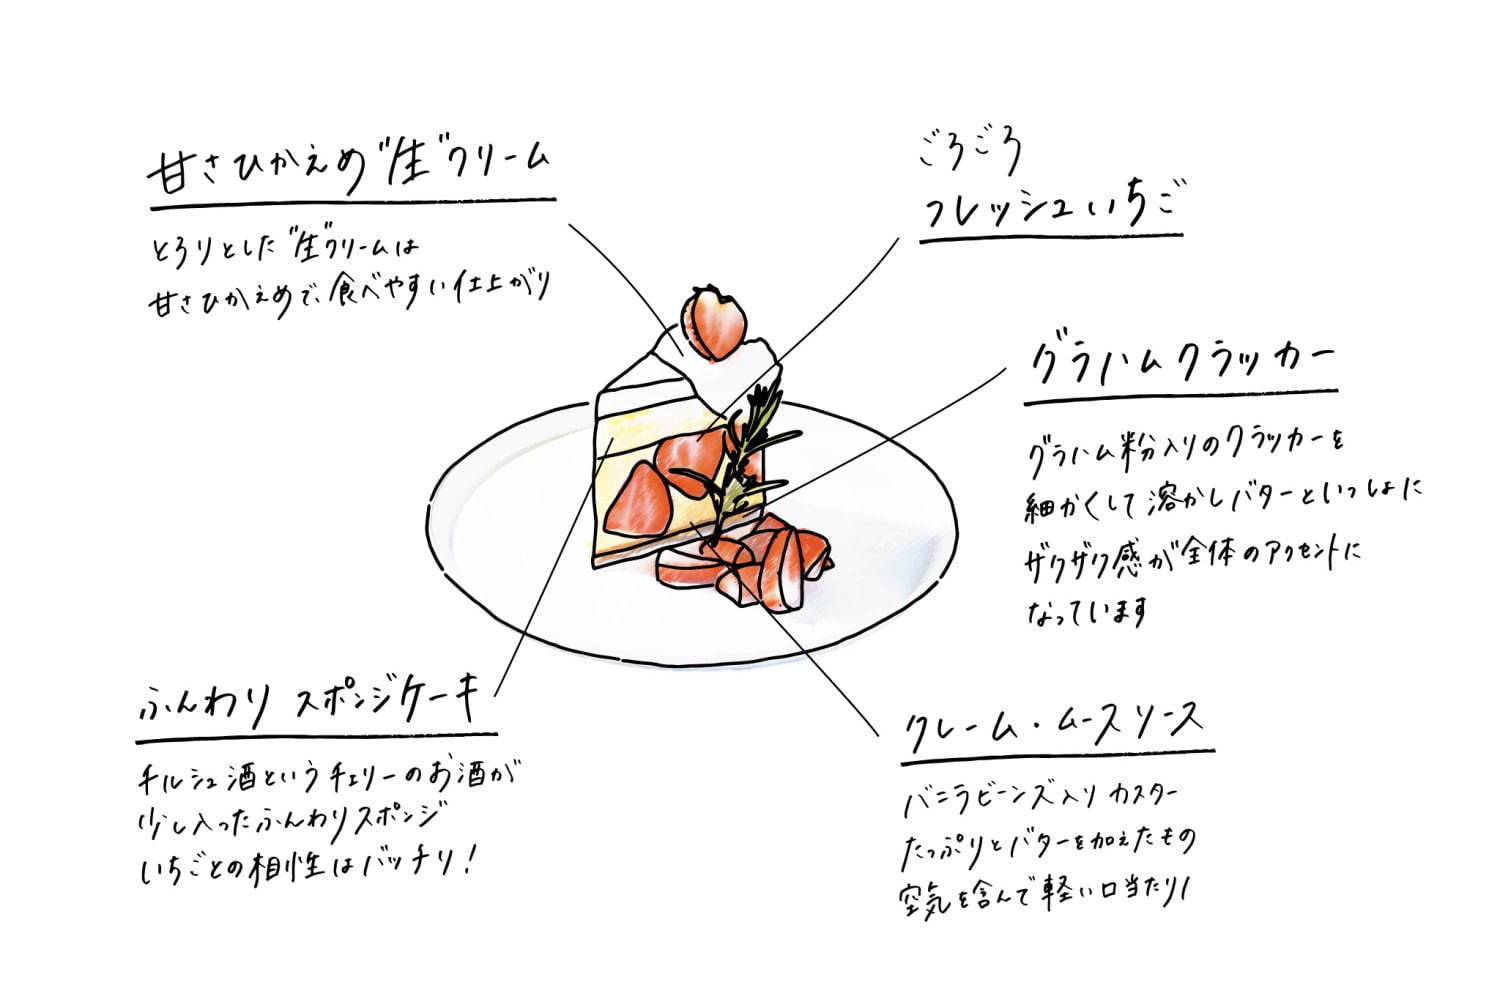 甘さひかえめ"生"クリーム
とろりとした"生"クリームは
甘さひかえめで、食べやすい仕上がり
ごろごろ
フレッシュいちご
グラハムクラッカー
グラハム粉入りのクラッカーを
細かくして溶かしバターといっしょに
ザクザク感が全体のアクセントに
なっています
ふんわり スポンジケーキ
チルシュ酒というチェリーのお酒が
少し入ったふんわりスポンジ
いちごとの相性はバッチリ!
クレーム・ムースソース
バニラビーンズ入りカスター
たっぷりとバターを加えたもの
空気を含んで軽い口当たり!